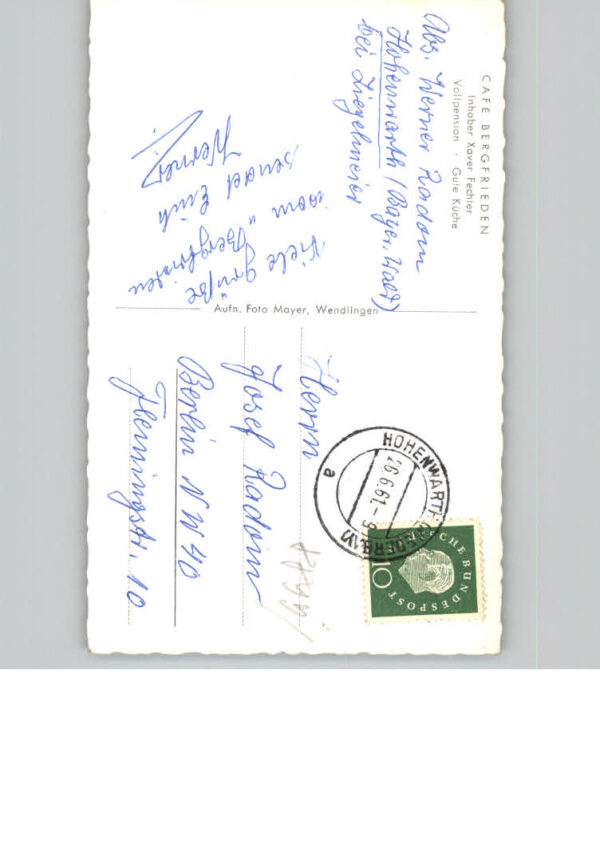 CAFÉ BERGFRIEDEN
Inhaber Xaver Fechter
Vollpension · Gute Küche
Abs. Werner Radom
Hohenwarth / Bayer. Wald)
bei Ziegelmeier
Viele Grüße
vom "Bergfrieden"
sendet Euch
Werner
Aufn. Foto Mayer, Wendlingen
Herrn
Josef Radom
Berlin NW 40
Flemingstr. 10
HOHENWARTH
26.6.61-9
a
DEUTSCHE BUNDESPOST
10